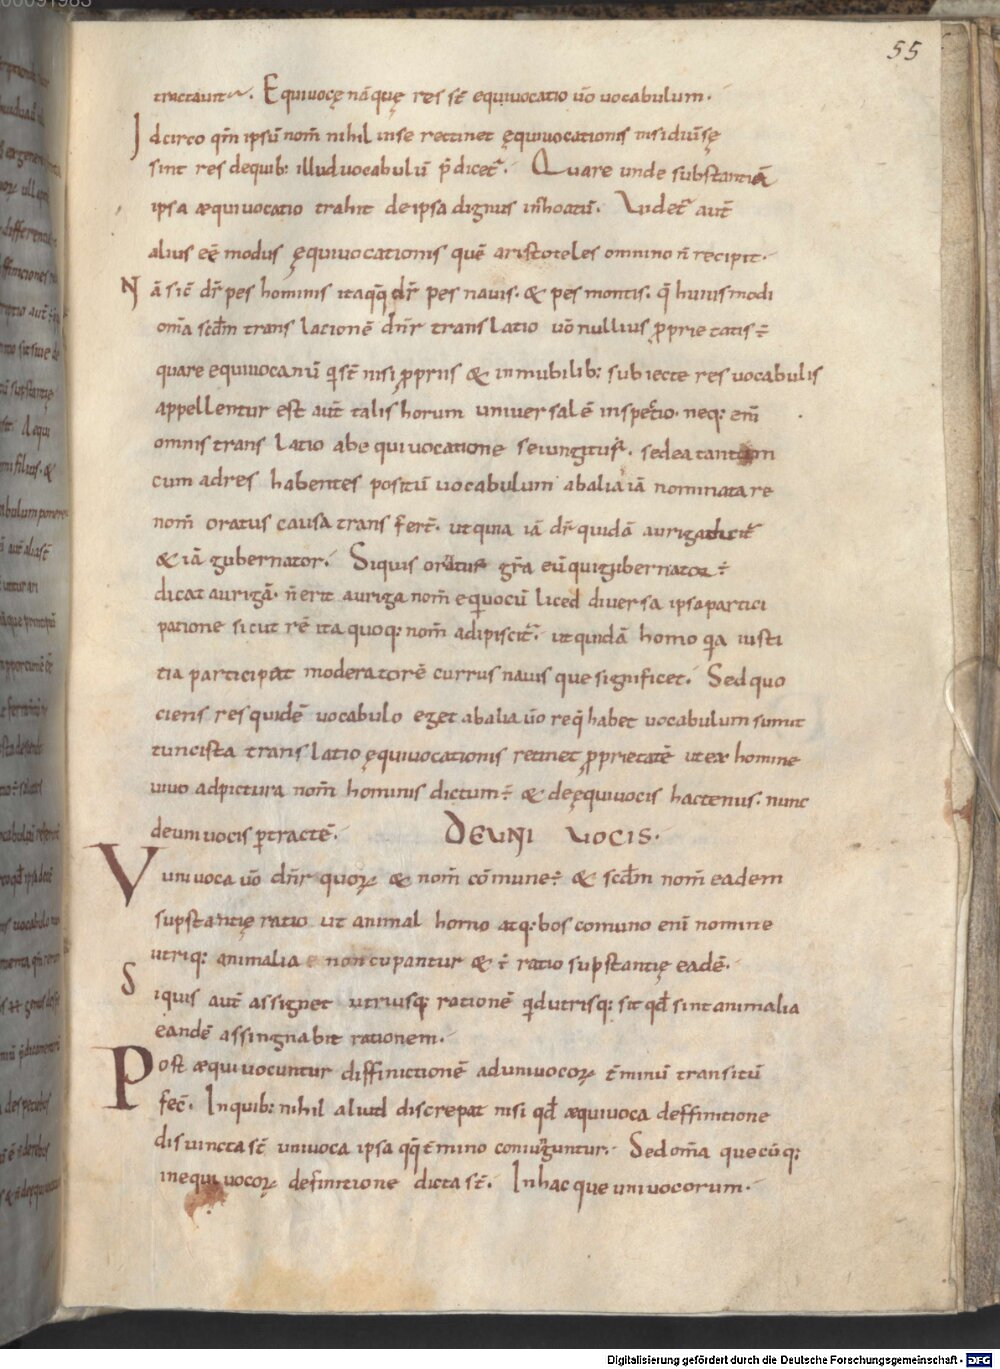 55
tractaunt. Equiuocę nāquę res st̄ equiuocatio ūo uocabulum.
Idcirco qm̄ ipsū nom̄ nihil inse retinet ęquiuocationis nisi diūsę
sint res dequib: illud uocabulū p̄dicet̄. Quare unde substantia
ipsa æquiuocatio trahit deipsa dignus in̄hoatū. Uidet̄ aut̄
alius eē modus ęquiuocationis quē aristoteles omnino n̄ recipit.
Nā sic̄ dr̄ pes hominis itaqq̄ dr̄ pes nauis. & pes montis. q̄ huiusmodi
om̄a scdm̄ trans lacionē dn̄r trans latio ūo nullius ꝓprie tatis ÷
quare equiuoca nū q̄ st̄ nisi ꝓpriis & inmubilib: subiecte res uocabulis
appellentur est aut̄ talis horum uniuersalē inspectio. neq: em̄
omnis trans latio abe quiuocatione seiungitur. sedea tantum
cum adres habentes positū uocabulum abalia iā nominata re
nom̄ oratus causa trans fert̄. ut quia iā dr̄ quidā auriga dicit̄
& iā gubernator. Siquis oratus gr̄a eū qui gubernator ÷
dicat aurigā. n̄ erit auriga nom̄ equocū liced diuersa ipsa partici
patione sicut rē ita quoq: nom̄ adipiscit̄. ut quidā homo qa iusti
tia participat moderatorē currus nauis que significet. Sed quo
ciens res quidē uocabulo eget abalia ūo re q̄ habet uocabulum sumit
tunc ista trans latio ęquiuocationis retinet ꝓprietatē ut ex homine
uiuo adpictura nom̄ hominis dictum ÷ & deęquiuocis hactenus. nunc
deuni uocis ꝑtractē. DEUNI UOCIS.
Vuniuoca ūo dn̄r quoꝝ & nom̄ cōmune ÷ & scdm̄ nom̄ eadem
supstantię ratio ut animal homo atq: bos comuno enī nomine
utriq: animalia noncupantur & ÷ ratio supstantię eadē.
Siquis aut̄ assignet utriusq: rationē qd utrisq: sit qd̄ sint animalia
eandē assingnabit rationem.
Post æquiuocuntur diffinictionē ad uniuocoꝝ t̄minū transitū
fec̄. Inquib: nihil aliud discrepat nisi qd̄ æquiuoca deffinitione
disiuncta st̄ uniuoca ipsa qq̄ t̄mino coniunguntur. Sed om̄a quecūq:
inequiuocoꝝ definitione dicta st̄. In hac que uniuocorum.
Digitalisierung gefördert durch die Deutsche Forschungsgemeinschaft - DFG